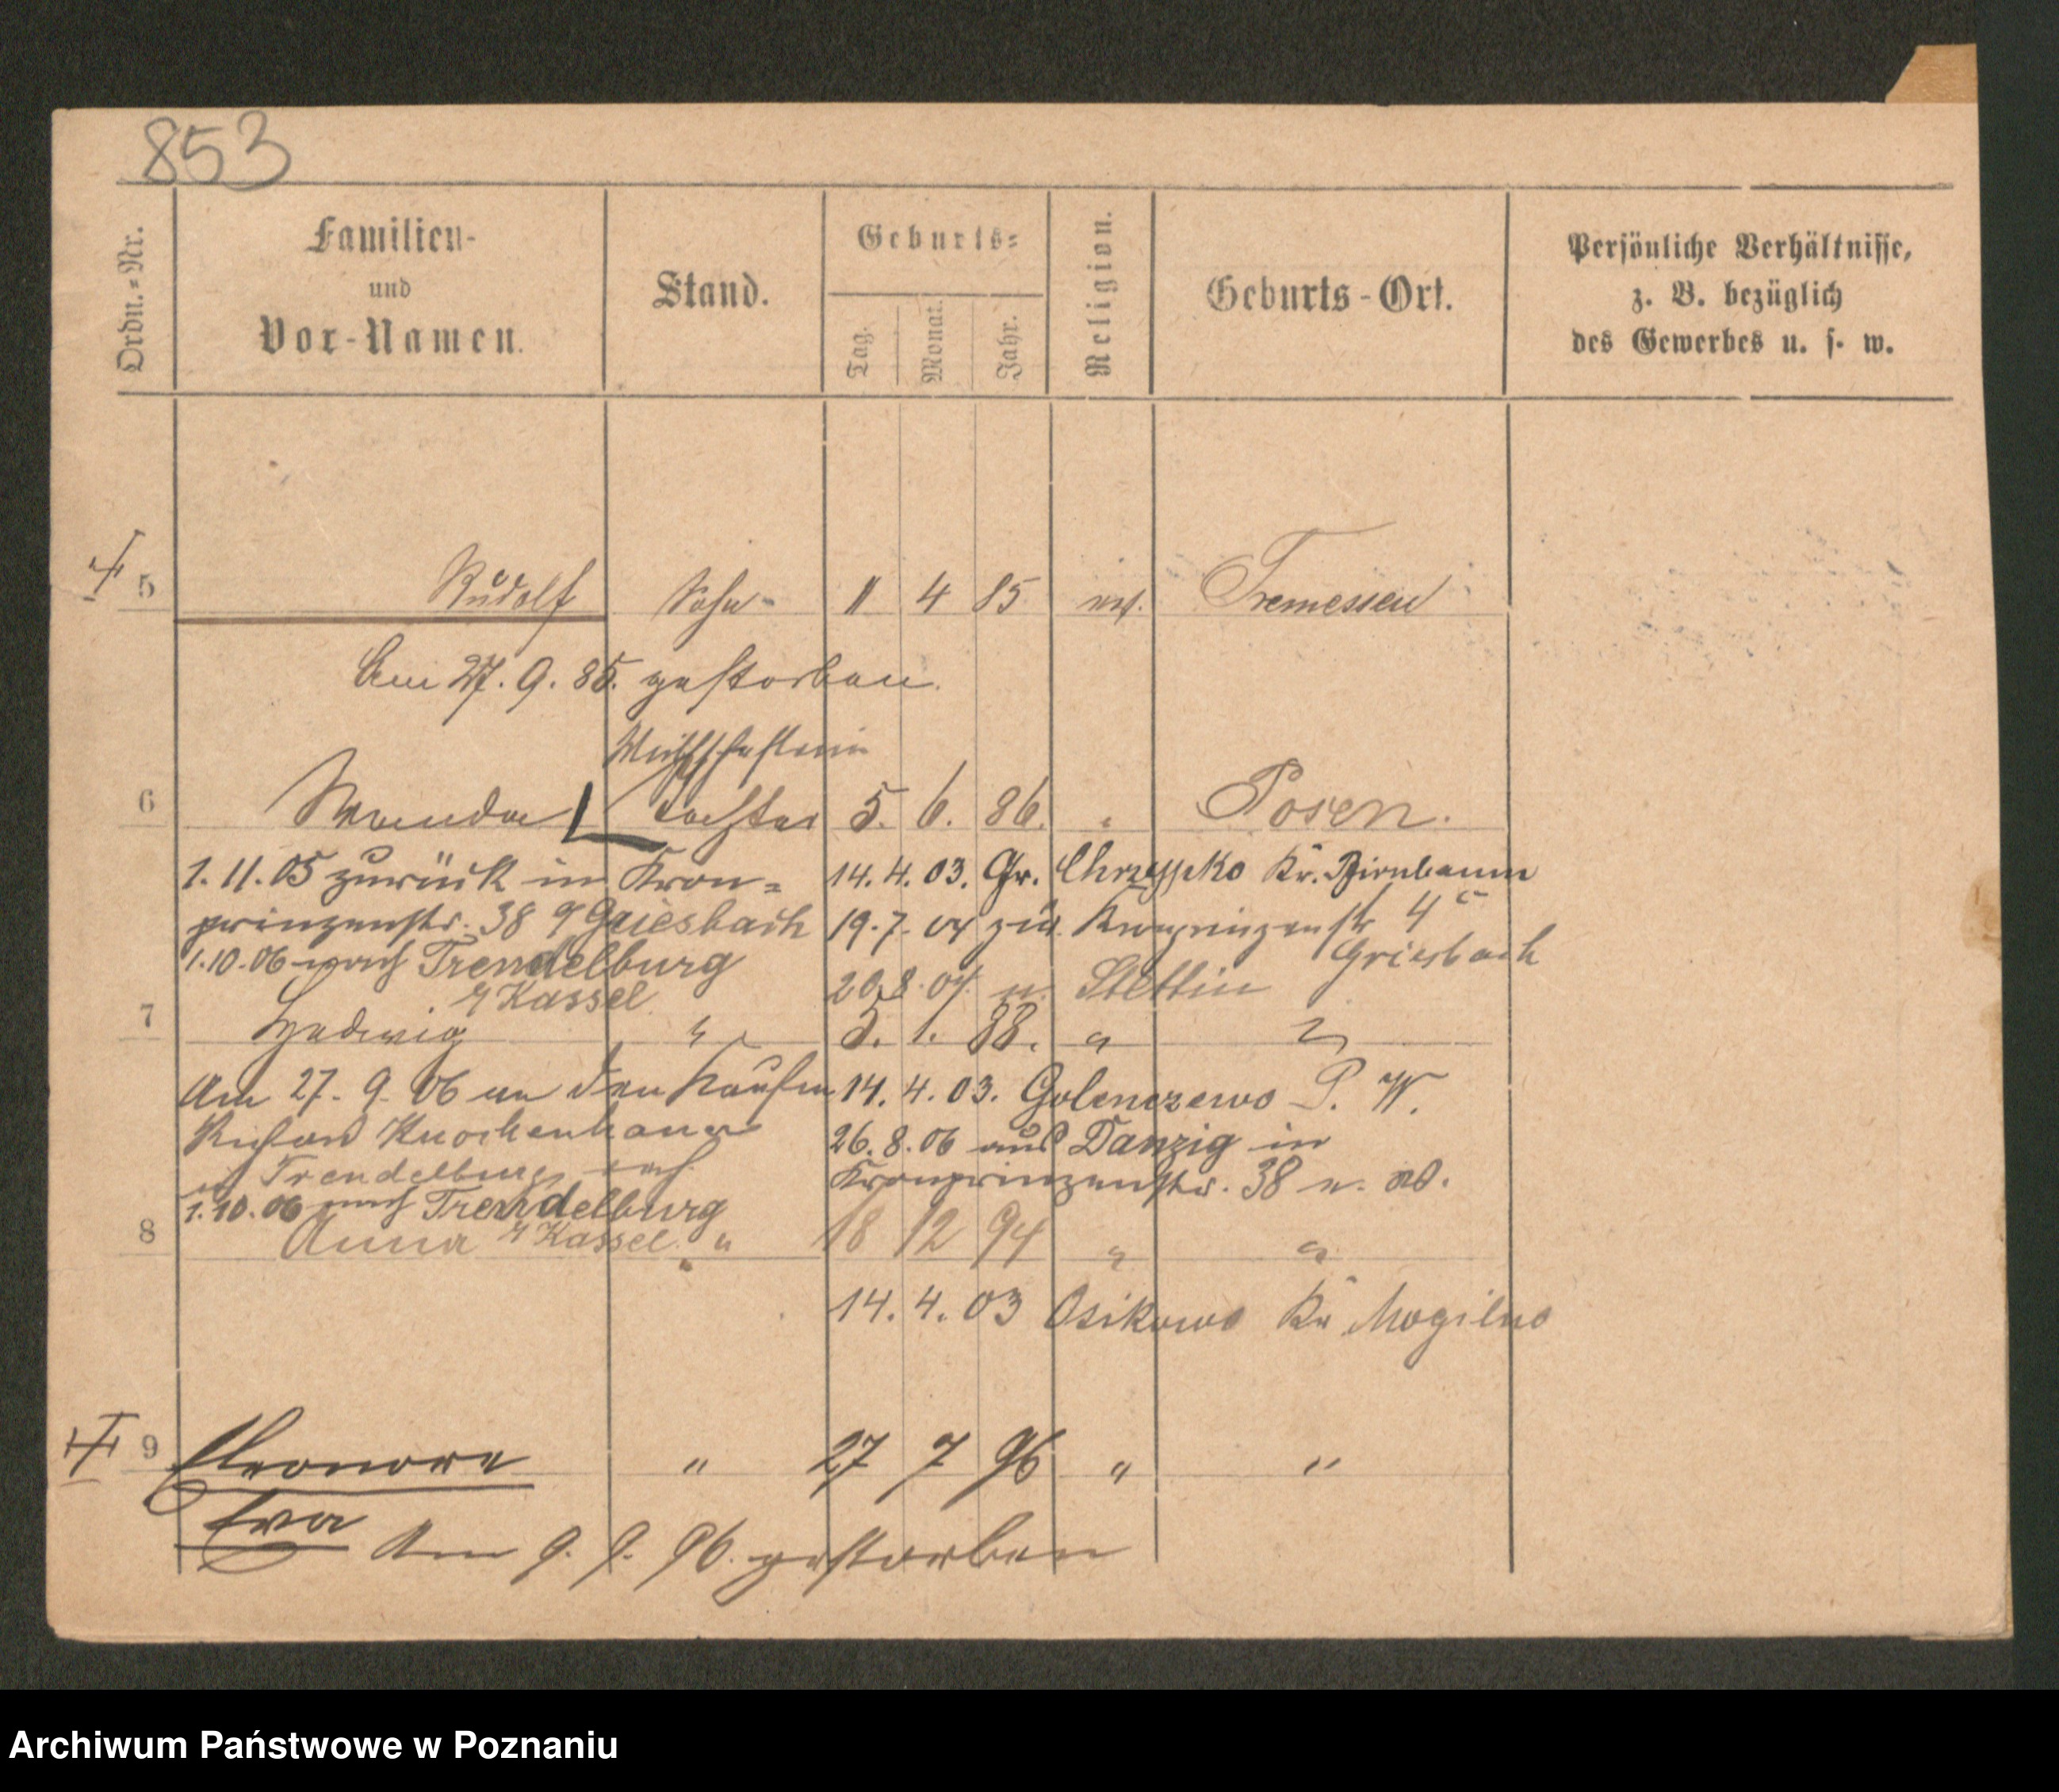 853
Ordn.-Nr.
Familien-
und
Vor-Namen.
Stand.
Geburts-
Tag.
Monat.
Jahr.
Religion.
Geburts-Ort.
Persönliche Verhältnisse,
z. B. bezüglich
des Gewerbes u. s. w.
5 Rudolf Sohn 11 4 85 Tremessen
Am 27. 9. 85. gestorben.
6 Wanda Tochter 5. 6. 86. " Posen.
1. 11. 05 zurück in Kron= 14. 4. 03. Gr. Chrzypsko Kr. Birnbaum
prinzenstr. 38 Griesbach 19. 7. 04 zur. Kronprinzenstr 4c
Griesbach
1. 10. 06 nach Trendelburg 20. 8. 04. n. Stettin
Kassel
7 Hedwig " 5. 1. 88. " "
Am 27. 9. 06 an den Kaufm 14. 4. 03. Golenczewo P. W.
Richard Knochenhauer 26. 8. 06 aus Danzig in
Trendelburg Kronprinzenstr. 38
1. 10. 06 nach Trendelburg
8 Anna Kassel " 18 12 94 " "
14. 4. 03 Osikowo Kr Mogilno
9 Eleonore " 27 7 96 " "
Eva Am 9. 9. 96. gestorben
Archiwum Państwowe w Poznaniu